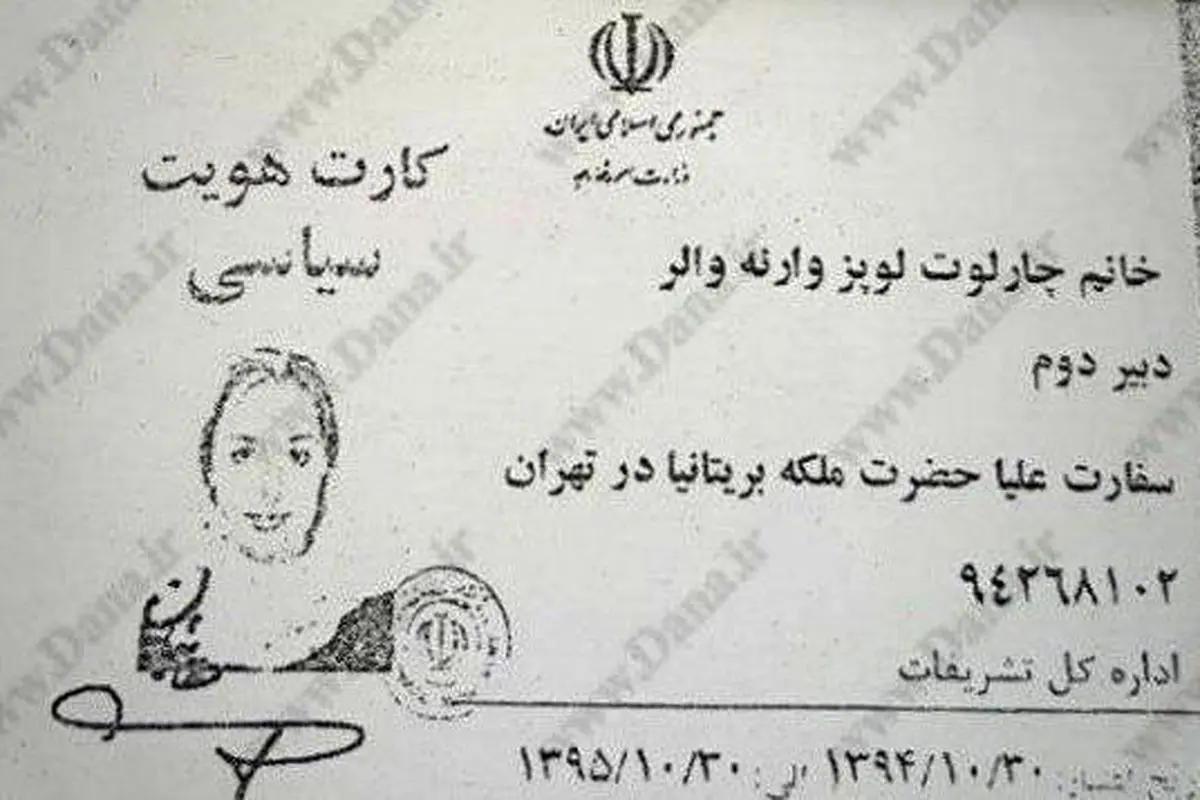 جمهوری اسلامی ایران
وزارت امور خارجه
کارت هویت
سیاسی
خانم چارلوت لوپز وارنه والر
دبیر دوم
سفارت علیا حضرت ملکه بریتانیا در تهران
۹٤۲٦۸۱۰۲
اداره کل تشریفات
تاریخ اعتبار: ۱۳۹۴/۱۰/۳۰ الی: ۱۳۹۵/۱۰/۳۰
www.Dana.ir